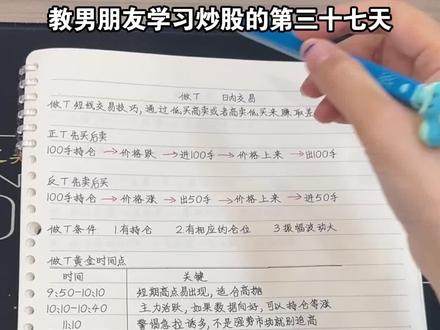 教男朋友学习炒股的第三十七天
做T 日内交易
做T 短线交易技巧，通过低买高卖或者高卖低买来赚取差
正T 先买后卖
100手持仓→价格跌→进100手→价格上来→出100手
反T 先卖后买
100手持仓→价格涨→出50手→价格上来→进50手
做T条件 1有持仓 2有相应的仓位 3振幅波动大
做T黄金时间点
时间 关键
9:50-10:10 短期高点易出现，适合高抛
10:10-10:40 主力活跃，如果数据向好，可以持仓等涨
11:10 警惕急拉诱多，不是强势市场就别追高